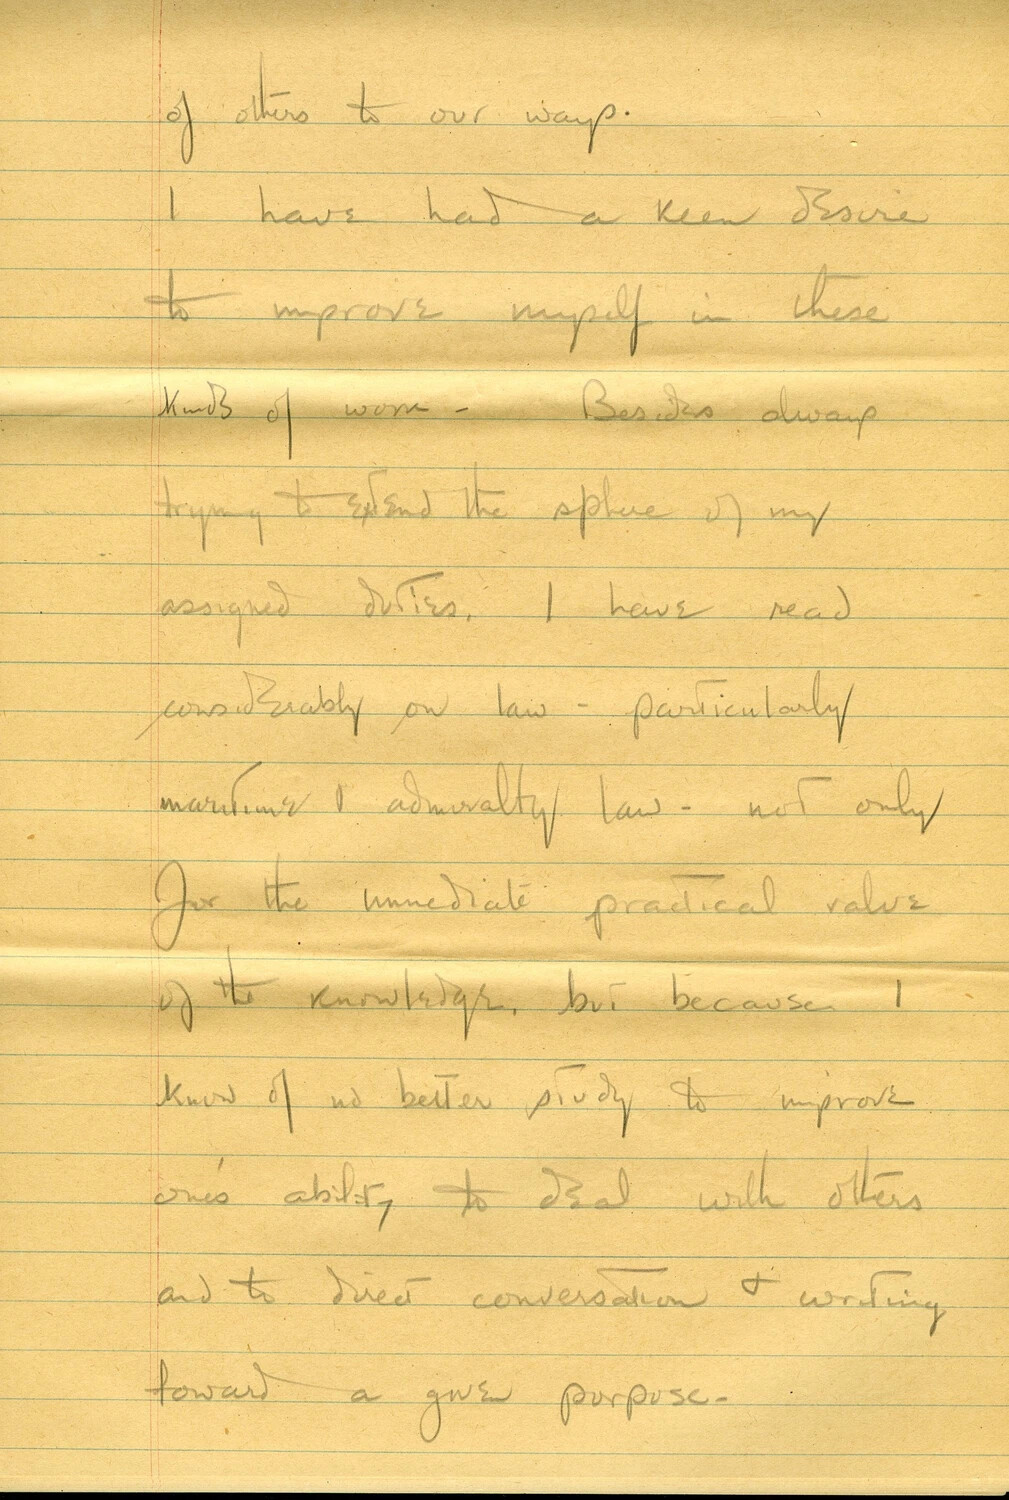 of others to our ways.
I have had a keen desire
to improve myself in these
kinds of work - Besides always
trying to extend the sphere of my
assigned duties, I have read
considerably on law - particularly
maritime & admiralty law - not only
for the immediate practical value
of the knowledge, but because I
know of no better study to improve
one's ability to deal with others
and to direct conversation & writing
toward a given purpose -